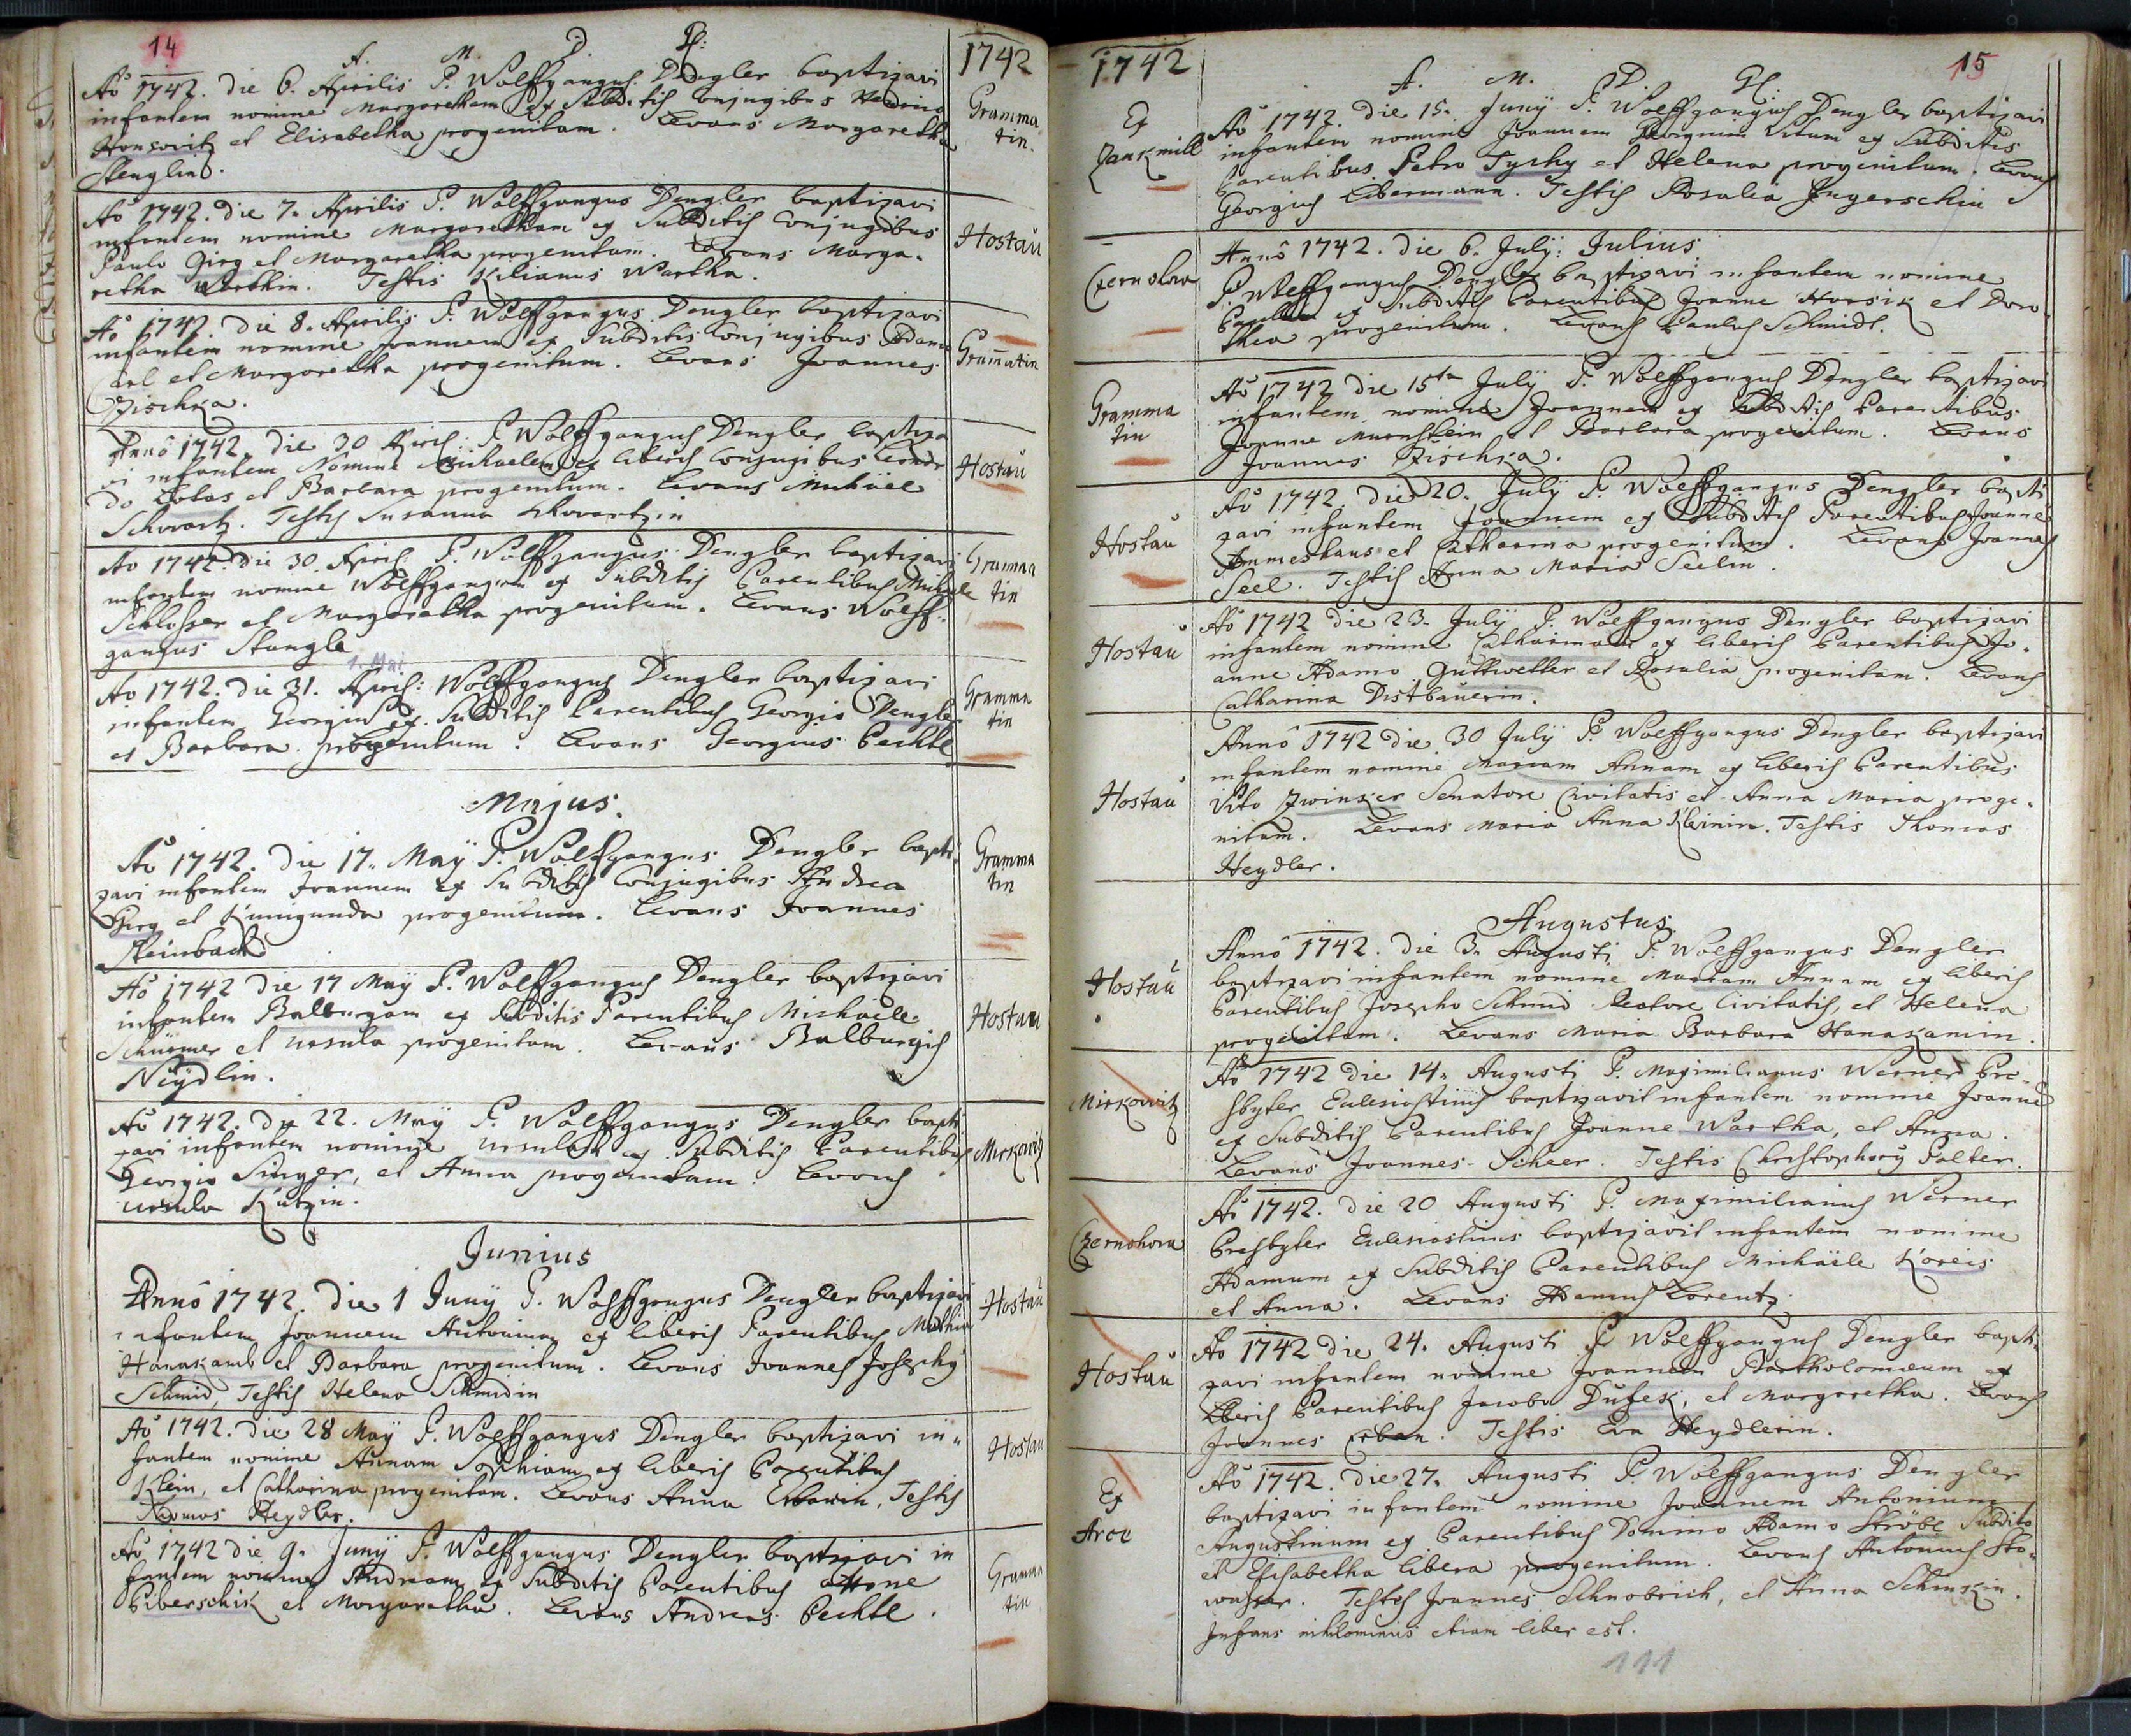 14
A. M. D. Gl:
1742
Aõ 1742. die 6. Aprilis P. Wolffgangus Dengler baptizavi
infantem nomine Margaretham ex Subditis Conjugibus
Honsovitz et Elisabetha progenitam. Levans Margaretha
Stenglin.
Gramma
tin.
Aõ 1742. die 7. Aprilis P. Wolffgangus Dengler baptizavi
infantem nomine Margaretham ex Subditis Conjugibus
Paulo Girg et Margaretha progenitam. Levans Marga-
retha Warthin. Testis Kilianus Wartha.
Hostau
Aõ 1742. die 8. Aprilis P. Wolffgangus Dengler baptizavi
infantem nomine Joannem ex Subditis Conjugibus Adamo
Carl et Margaretha progenitum. Levans Joannes
Zischka.
Gram̄atin
Annô 1742 die 30 Apris: P. Wolffgangus Dengler baptiza
vi infantem Nomine Michaelem ex liberis Conjugibus
do Lobas et Barbara progenitum. Levans Michäel
Schwartz. Testis Susanna Schwartzin
Hostau
Ao 1742. die 30. Apris: P. Wolffgangus Dengler baptizavi
infantem nomine Wolffgangum ex Subditis Parentibus Michaele
Schlosser et Margaretha progenitum. Levans Wolff-
gangus Stangle
Gramma
tin
1. Mai
Ao 1742. die 31. Apris: Wolffgangus Dengler baptizavi
infantem Georgium ex Subditis Parentibus Georgio Dengler
et Barbara progenitum. Levans Georgius Pechtl
Gramma
tin
Majus.
Aõ 1742. die 17. Maÿ P. Wolffgangus Dengler bapti
zavi infantem Joannem ex Subditis Conjugibus Andrea
Girg et Kunigunda progenitum. Levans Joannes
Steinbach
Gramma
tin
Aõ 1742 die 17 Maÿ P. Wolffgangus Dengler baptizavi
infantem Balburgam ex subditis Parentibus Michaële
Schürmer et Ursula progenitam. Levans Balburgis
Neÿdlin.
Hostau
Aõ 1742. die 22. Maÿ P. Wolffgangus Dengler bapti
zavi infantem nomine Ursulam ex Subditis Parentibus
Georgio Singer, et Anna progenitam. Levans
Ursula Kutzin.
Mirkovitz
Junius
Annô 1742. die 1 Junÿ P. Wolffgangus Dengler baptizavi
infantem Joannem Antonium ex liberis Parentibus Mathia
Hanakamb et Barbara progenitum. Levans Joannes Josephus
Schmid, Testis Helena Schmidin
Hostau
Aõ 1742. die 28 Maÿ P. Wolffgangus Dengler baptizavi in-
fantem nomine Annam Sophiam ex liberis Parentibus
Klein, et Catharina progenitam. Levans Anna Erbanin, Testis
Thomas Heydler.
Hostau
Aõ 1742 die 9. Junÿ P. Wolffgangus Dengler baptizavi in
fantem nomine Andream ex Subditis Parentibus
Piberschik et Margaretha. Levans Andreas Pechtl.
Gramma
tin
1742
A. M. D. Gl:
15
Ex
Zankmill
Aõ 1742. die 15. Junÿ P. Wolffgangus Dengler baptizavi
infantem nomine Joannem Vitum ex Subditis
Parentibus Petro Tyschy et Helena progenitum. Levans
Georgius Libermann. Testis Rosalia Ingerschin
Annô 1742. die 6. Julÿ: Julius.
Czernolova
P. Wolffgangus Dengler baptizavi infantem nomine
Paulum ex Subditis Parentibus Joanne Horsik et Doro
thea progenitum. Levans Paulus Schmidt.
Gramma
tin
Aõ 1742 die 15ta Julÿ P. Wolffgangus Dengler baptizavi
infantem nomine Joannem ex Subditis Parentibus
Joanne Murnstein et Barbara progenitum. Levans
Joannes Zischka.
Hostau
Aõ 1742. die 20. Julÿ P. Wolffgangus Dengler bapti
zavi infantem Joannem ex Subditis Parentibus Joanne
Ammeshaus et Catharina progenitum. Levans Joannes
Seel. Testis Anna Maria Seelin.
Hostau
Aõ 1742 die 23. Julÿ P. Wolffgangus Dengler baptizavi
infantem nomine Catharinam ex liberis Parentibus Jo-
anne Adamo Guttwetter et Rosalia progenitam. Levans
Catharina Distbauerin.
Hostau
Annô 1742 die 30 Julÿ P. Wolffgangus Dengler baptizavi
infantem nomine Mariam Annam ex liberis Parentibus
Vito Zwinker Senatore Civitatis et Anna Maria proge-
nitam. Levans Maria Anna Kleinin. Testis Thomas
Heydler.
Augustus.
Hostau
Annô 1742. die 3. Augusti P. Wolffgangus Dengler
baptizavi infantem nomine Mariam Annam ex liberis
Parentibus Josepho Schmid Rectore Civitatis, et Helena
progenitam. Levans Maria Barbara Hanakamin.
Mirkovitz
Aõ 1742 die 14. Augusti P. Maximilianus Werner Pre-
sbyter Eclesiasticus baptizavit infantem nomine Joannem
ex Subditis Parentibus Joanne Wartha, et Anna.
Levans Joannes Scheer. Testis Christophorus Polter.
Czernohora
Aõ 1742. die 20 Augusti P. Maximilianus Werner
Presbyter Eclesiasticus baptizavit infantem nomine
Adamum ex Subditis Parentibus Michäele Koreis
et Anna. Levans Adamus Lorentz
Hostau
Ao 1742 die 24. Augusti P. Wolffgangus Dengler bapti-
zavi infantem nomine Joannem Bartholomæum ex
Liberis Parentibus Jacobo Dusek, et Margaretha. Levans
Joannes Erban. Testis Eva Heydlerin.
Ex
Arce
Aõ 1742. die 27. Augusti P. Wolffgangus Dengler
baptizavi infantem nomine Joannem Antonium
Augustinum ex Parentibus Domino Adamo Ströbl Subdito
et Elisabetha libera progenitum. Levans Antonius Sto-
wasser. Testes Joannes Schnobrich, et Anna Schinskin.
Infans nihilominus etiam liber est.
111